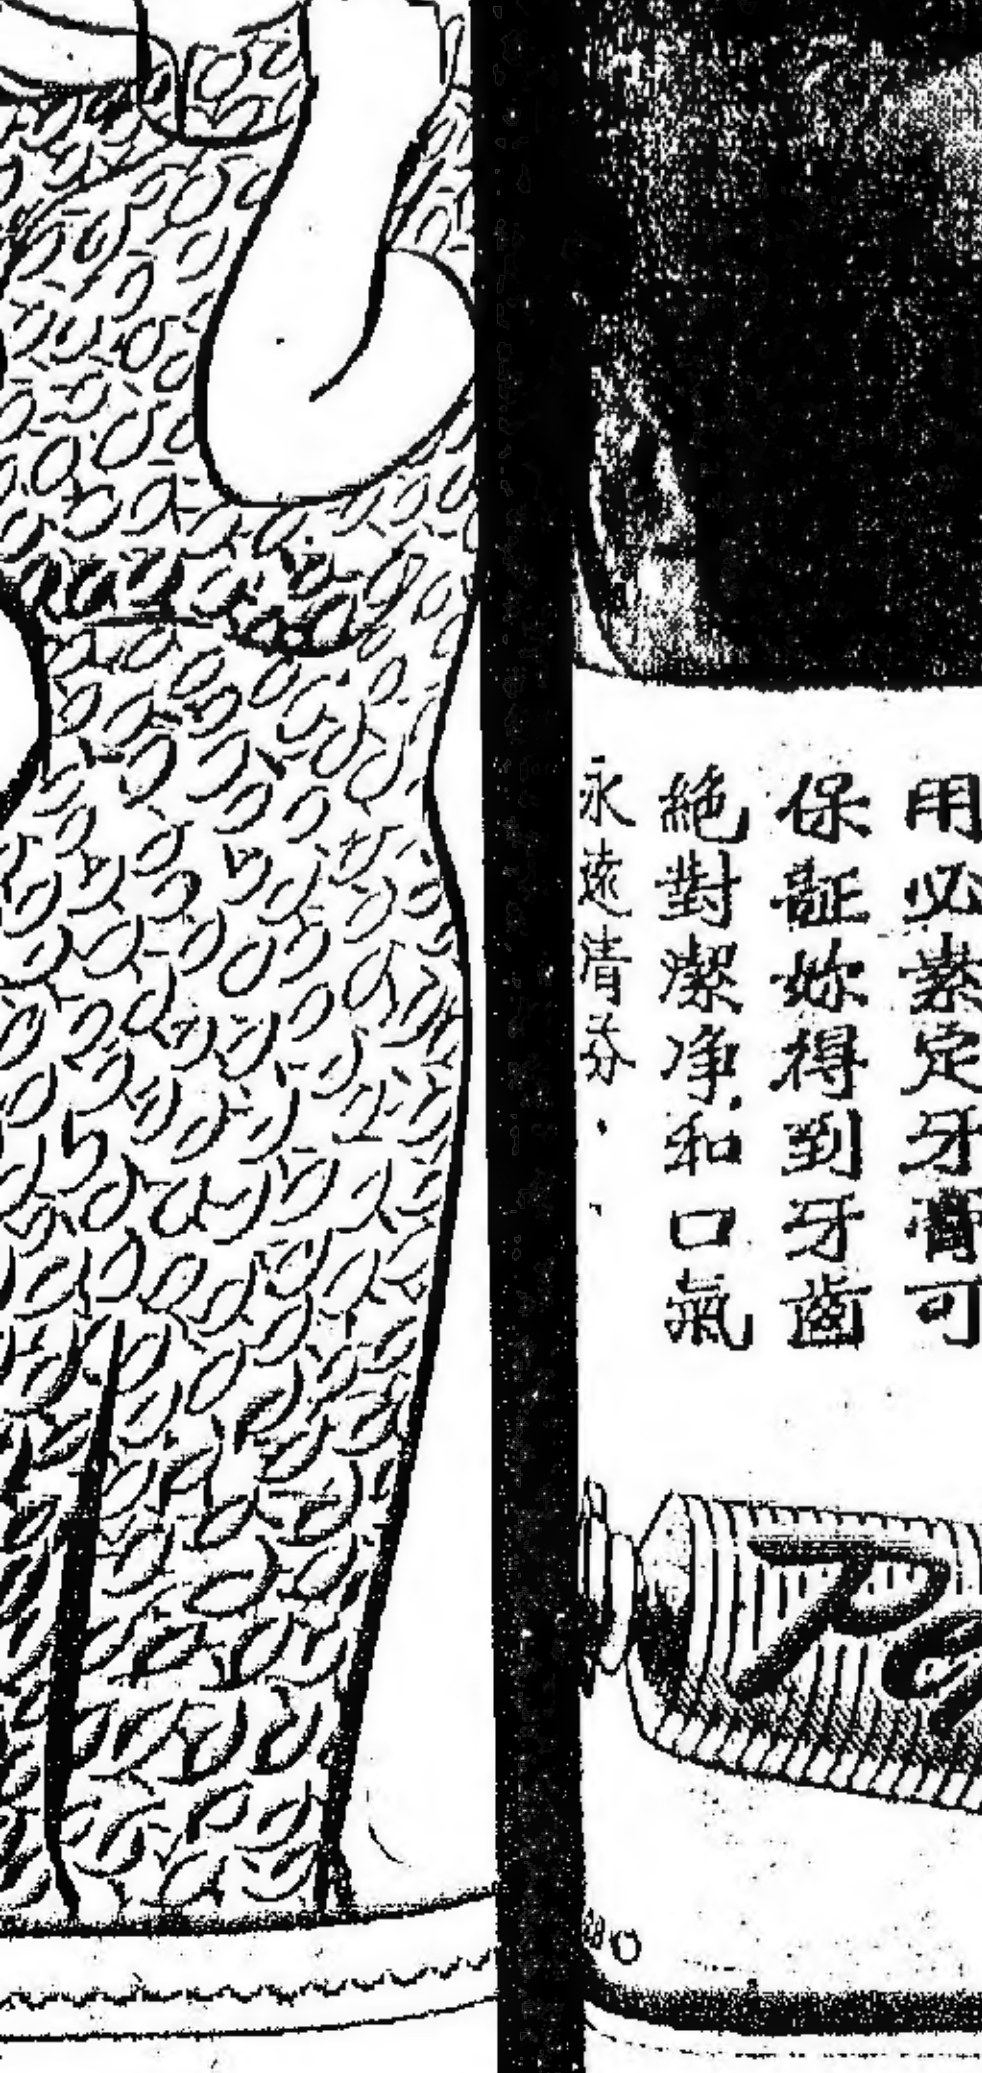 用必素定牙膏可
保証妳得到牙齒
絕對潔净和口氣
永遠清芬．
Pe